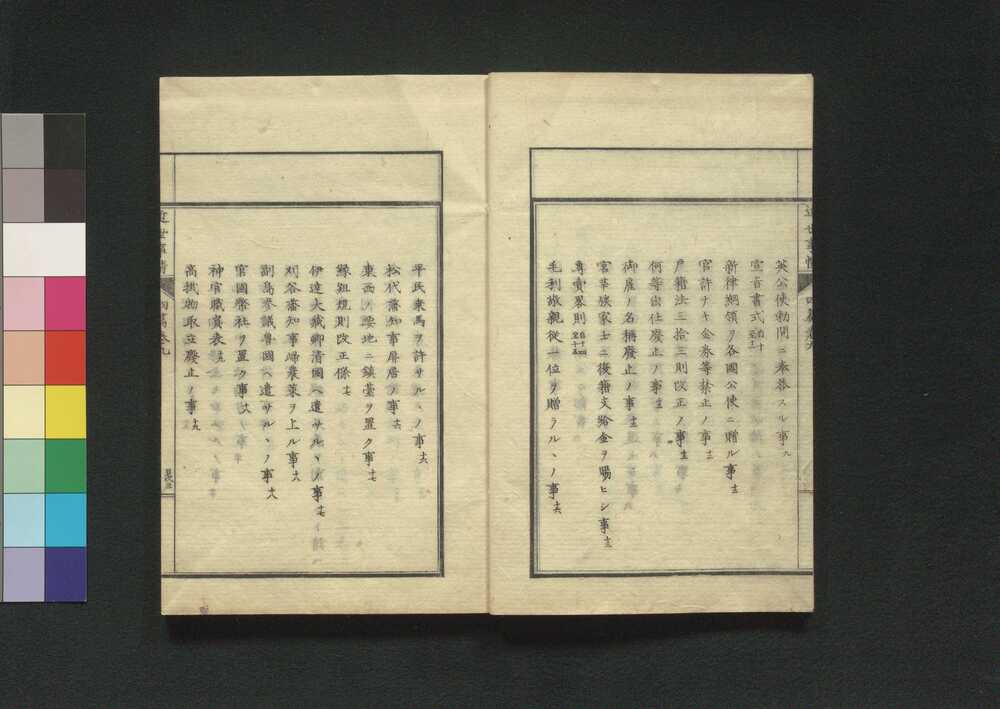 英公使勅問ニ奉答スル事九
宣旨書式
新律綱領ヲ各國公使ニ贈ル事十一
官許ナキ金券等禁止ノ事十二
戸籍法三拾三則改正ノ事十二
何等出仕廢止ノ事十三
御雇ノ名稱廢止ノ事十三
官華族家士ニ復籍支給金ヲ賜ヒシ事十三
專賣畧則
毛利敬親從一位ヲ贈ラルヽノ事十六
近世事情
四篇卷九
平民乘馬ヲ許サルヽノ事十六
松代藩知事屏居ノ事十六
東西ノ要地ニ鎭臺ヲ置ク事十七
縁組規則改正條十七
伊達大藏卿清國ヘ遣サルヽノ事十七
刈谷藩知事歸農策ヲ上ル事十八
副島參議魯國ヘ遣サルヽノ事十八
官國幣社ヲ置ク事十八
神官職員表
高掛物取立廢止ノ事十九
近世事情
四篇卷九